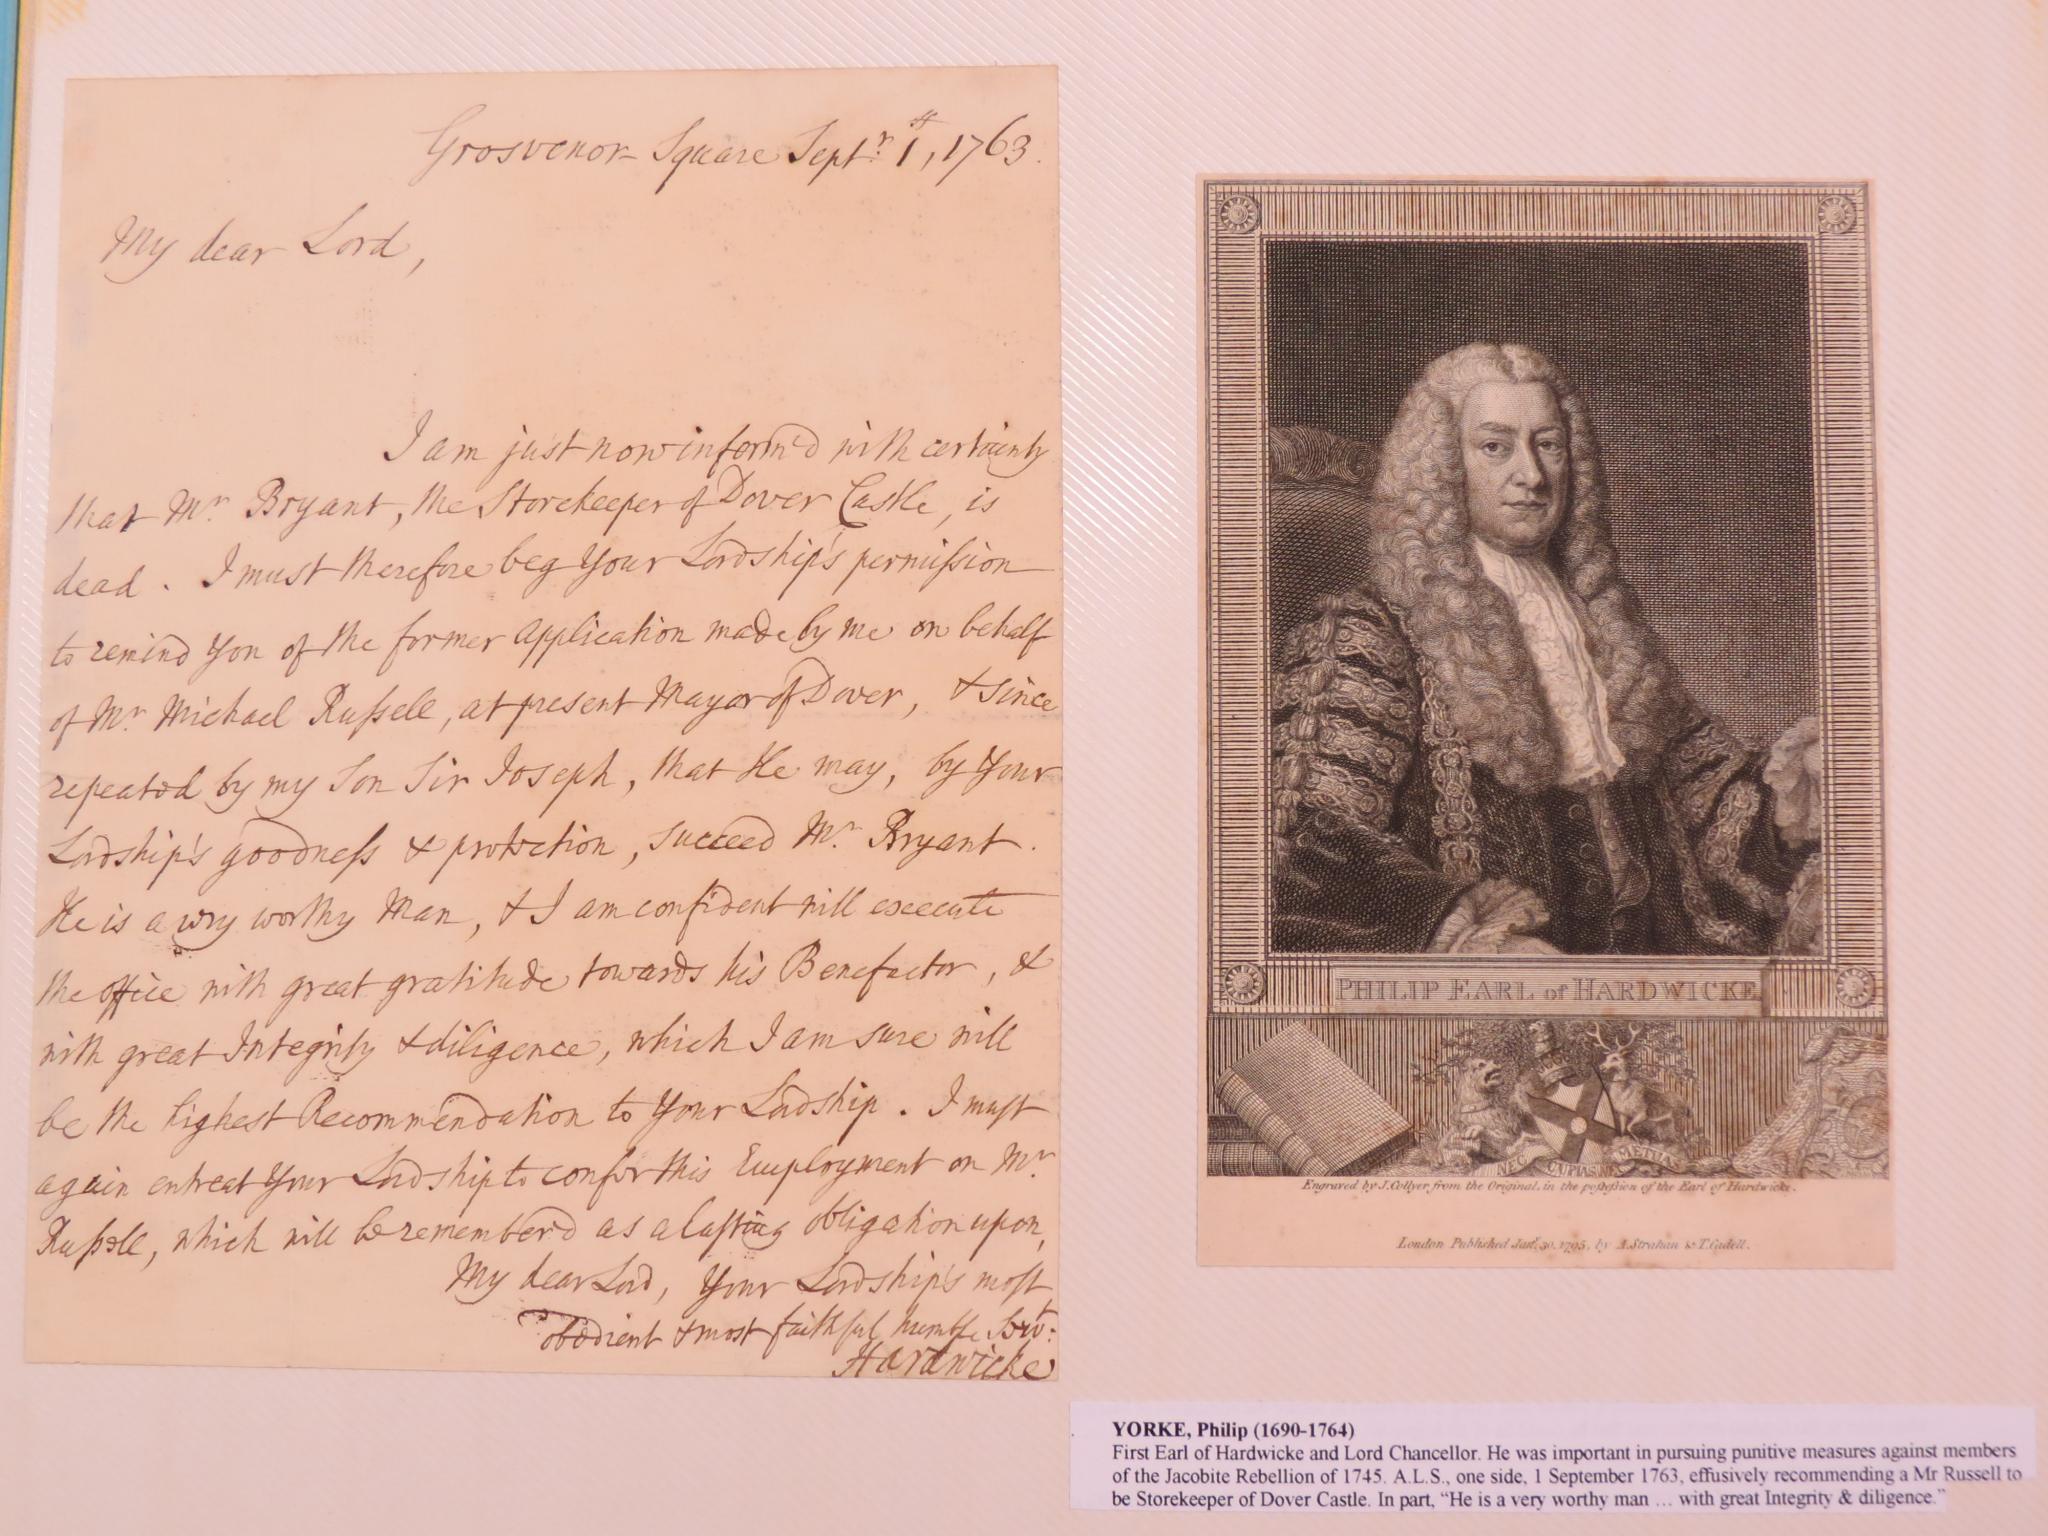 Grosvenor Square Septr. 1st, 1763.
My dear Lord,
I am just now inform'd with certainty
that Mr. Bryant, the Storekeeper of Dover Castle, is
dead. I must therefore beg Your Lordship's permiſsion
to remind You of the former Application made by me on behalf
of Mr. Michael Ruſsell, at present Mayor of Dover, & since
repeated by my Son Sir Joseph, that He may, by Your
Lordship's goodneſs & protection, succeed Mr. Bryant.
He is a very worthy Man, & I am confident will execute
the office with great gratitude towards his Benefactor, &
with great Integrity & diligence, which I am sure will
be the highest Recommendation to Your Lordship. I muſt
again entreat Your Lordship to confer this Employment on Mr
Ruſsell, which will be remember'd as a laſting obligation upon,
My dear Lord, Your Lordship's moſt
obedient & most faithful humble Servt.
Hardwicke
PHILIP EARL of HARDWICKE
NEC CUPIAS NEC METUAS
Engraved by J. Collyer from the Original, in the poſseſsion of the Earl of Hardwicke.
London Published Jany. 30, 1795, by A. Strahan & T. Cadell.
YORKE, Philip (1690-1764)
First Earl of Hardwicke and Lord Chancellor. He was important in pursuing punitive measures against members
of the Jacobite Rebellion of 1745. A.L.S., one side, 1 September 1763, effusively recommending a Mr Russell to
be Storekeeper of Dover Castle. In part, “He is a very worthy man … with great Integrity & diligence.”